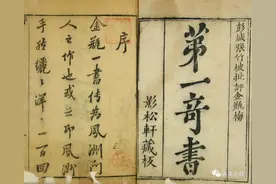 彭城張竹坡批評金瓶梅
第一奇書
影松軒藏板
序
金瓶一書传為鳳洲門
人之作也或云即鳳洲
手然纚纚洋洋一百回